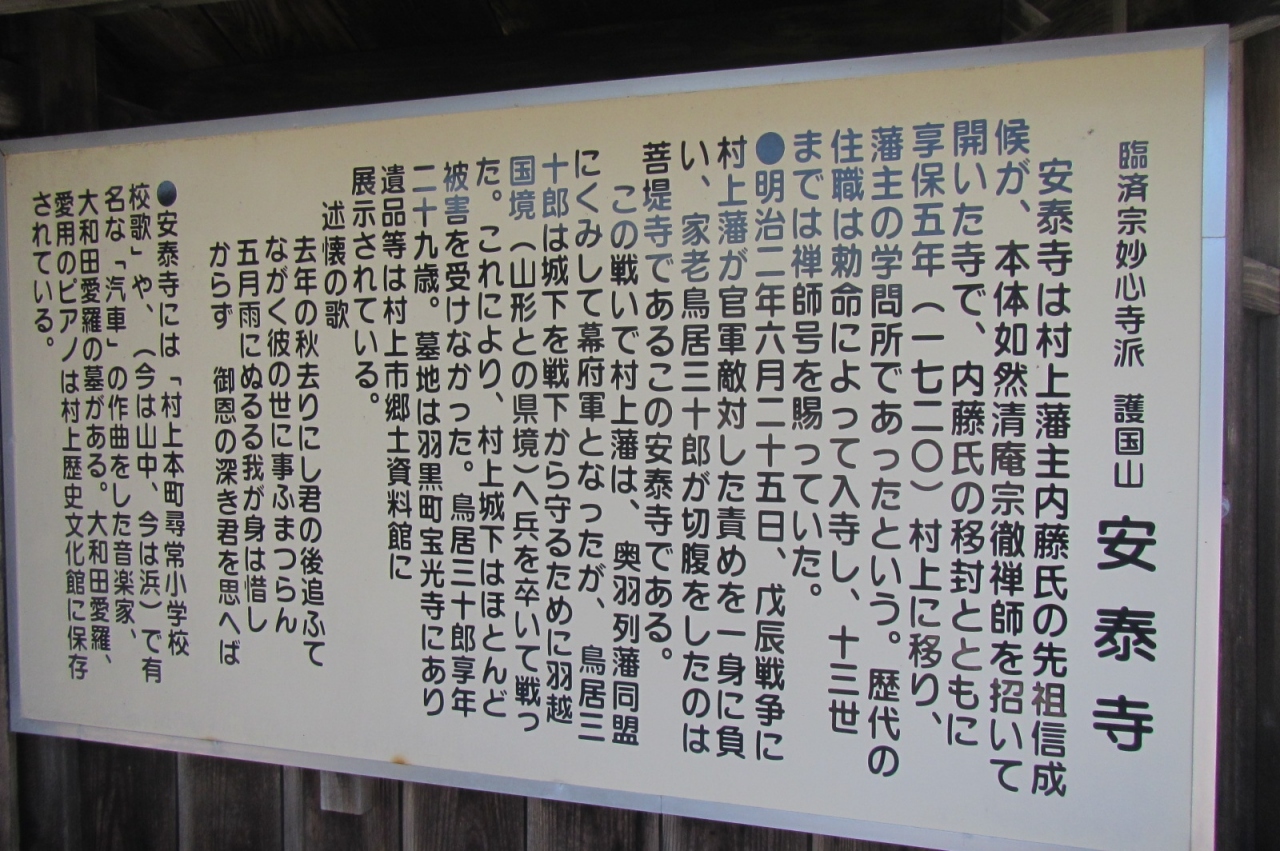 臨済宗妙心寺派 護国山 安泰寺
安泰寺は村上藩主内藤氏の先祖信成
候が、本体如然清庵宗徹禅師を招いて
開いた寺で、内藤氏の移封とともに
享保五年（一七二〇）村上に移り、
藩主の学問所であったという。歴代の
住職は勅命によって入寺し、十三世
までは禅師号を賜っていた。
●明治二年六月二十五日、戊辰戦争に
村上藩が官軍敵対した責めを一身に負
い、家老鳥居三十郎が切腹をしたのは
菩堤寺であるこの安泰寺である。
この戦いで村上藩は、奥羽列藩同盟
にくみして幕府軍となったが、鳥居三
十郎は城下を戦下から守るために羽越
国境（山形との県境）へ兵を卒いて戦っ
た。これにより、村上城下はほとんど
被害を受けなかった。鳥居三十郎享年
二十九歳。墓地は羽黒町宝光寺にあり
遺品等は村上市郷土資料館に
展示されている。
述懐の歌
去年の秋去りにし君の後追ふて
ながく彼の世に事ふまつらん
五月雨にぬるる我が身は惜し
からず 御恩の深き君を思へば
●安泰寺には「村上本町尋常小学校
校歌」や、（今は山中、今は浜）で有
名な「汽車」の作曲をした音楽家、
大和田愛羅の墓がある。大和田愛羅、
愛用のピアノは村上歴史文化館に保存
されている。